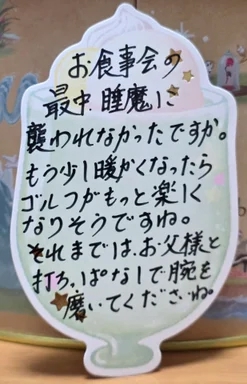 お食事会の
最中、睡魔に
襲われなかったですか。
もう少し暖かくなったら
ゴルフがもっと楽しく
なりそうですね。
それまでは、お父様と
打ちっぱなしで腕を
磨いてくださいね。